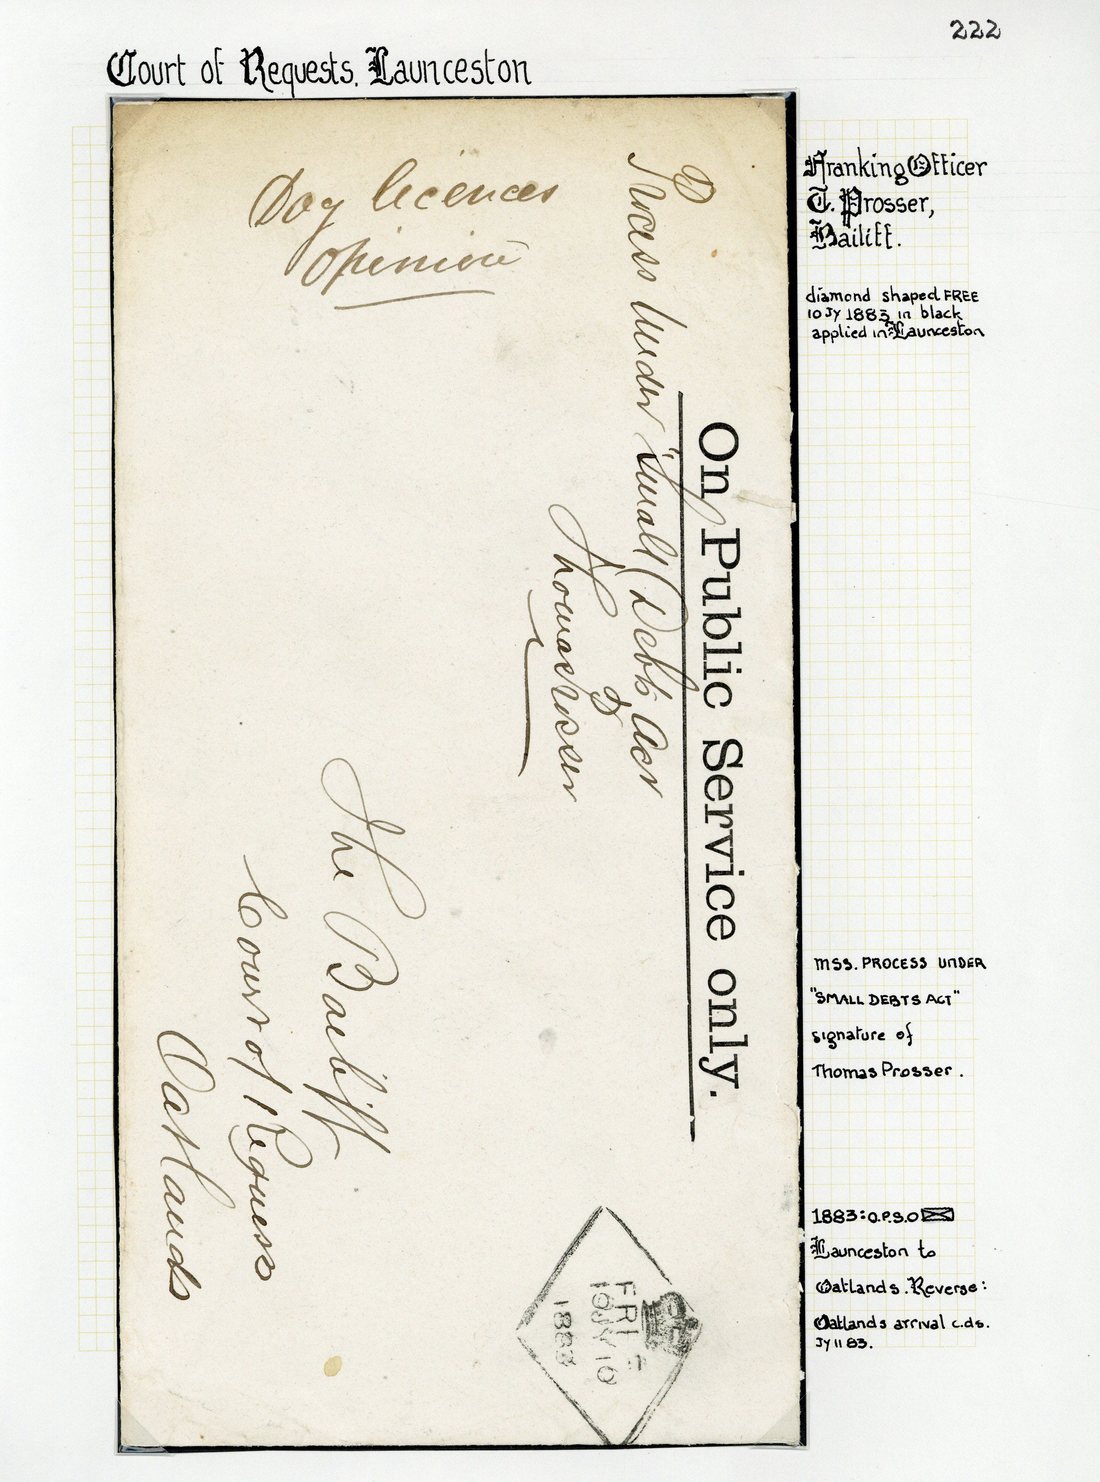 222
Court of Requests. Launceston
Franking Officer
T. Prosser,
Bailiff.
diamond shaped FREE
10 JY 1883 in black
applied in Launceston
Dog licences
Opinion
On Public Service only.
Process under "Small Debts Act
Thomas Prosser
The Bailiff
Court of Requests
Oatlands
FREE
10 JY 10
1883
MSS. PROCESS UNDER
"SMALL DEBTS ACT"
signature of
Thomas Prosser.
1883: O.P.S.O
Launceston to
Oatlands. Reverse:
Oatlands arrival c.ds.
JY 11 83.